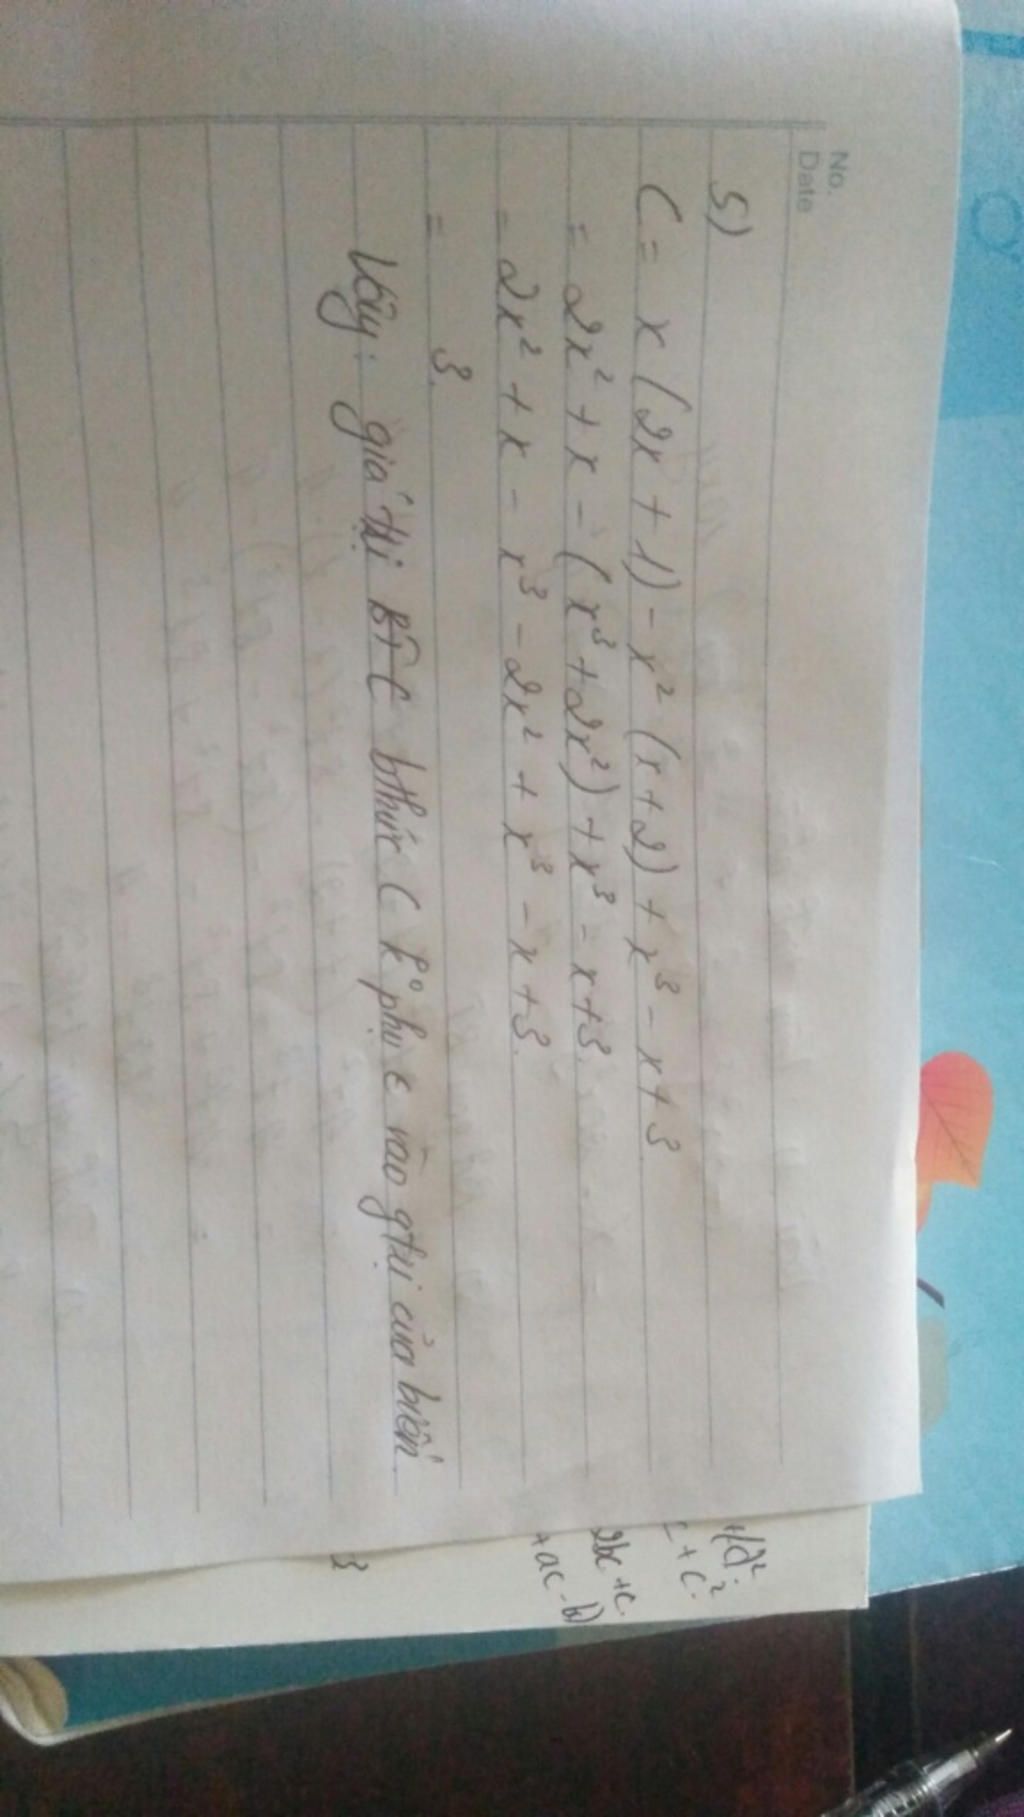 No.
Date
5)
C = x (2x + 1) - x² (x + 2) + x³ - x + 3
= 2x² + x - (x³ + 2x²) + x³ - x + 3.
= 2x² + x - x³ - 2x² + x³ - x + 3.
= 3.
Vậy: giá trị bthức C k° phụ t vào gtrị của biến.
+ c²
2bc + c
+ ac - b)
3